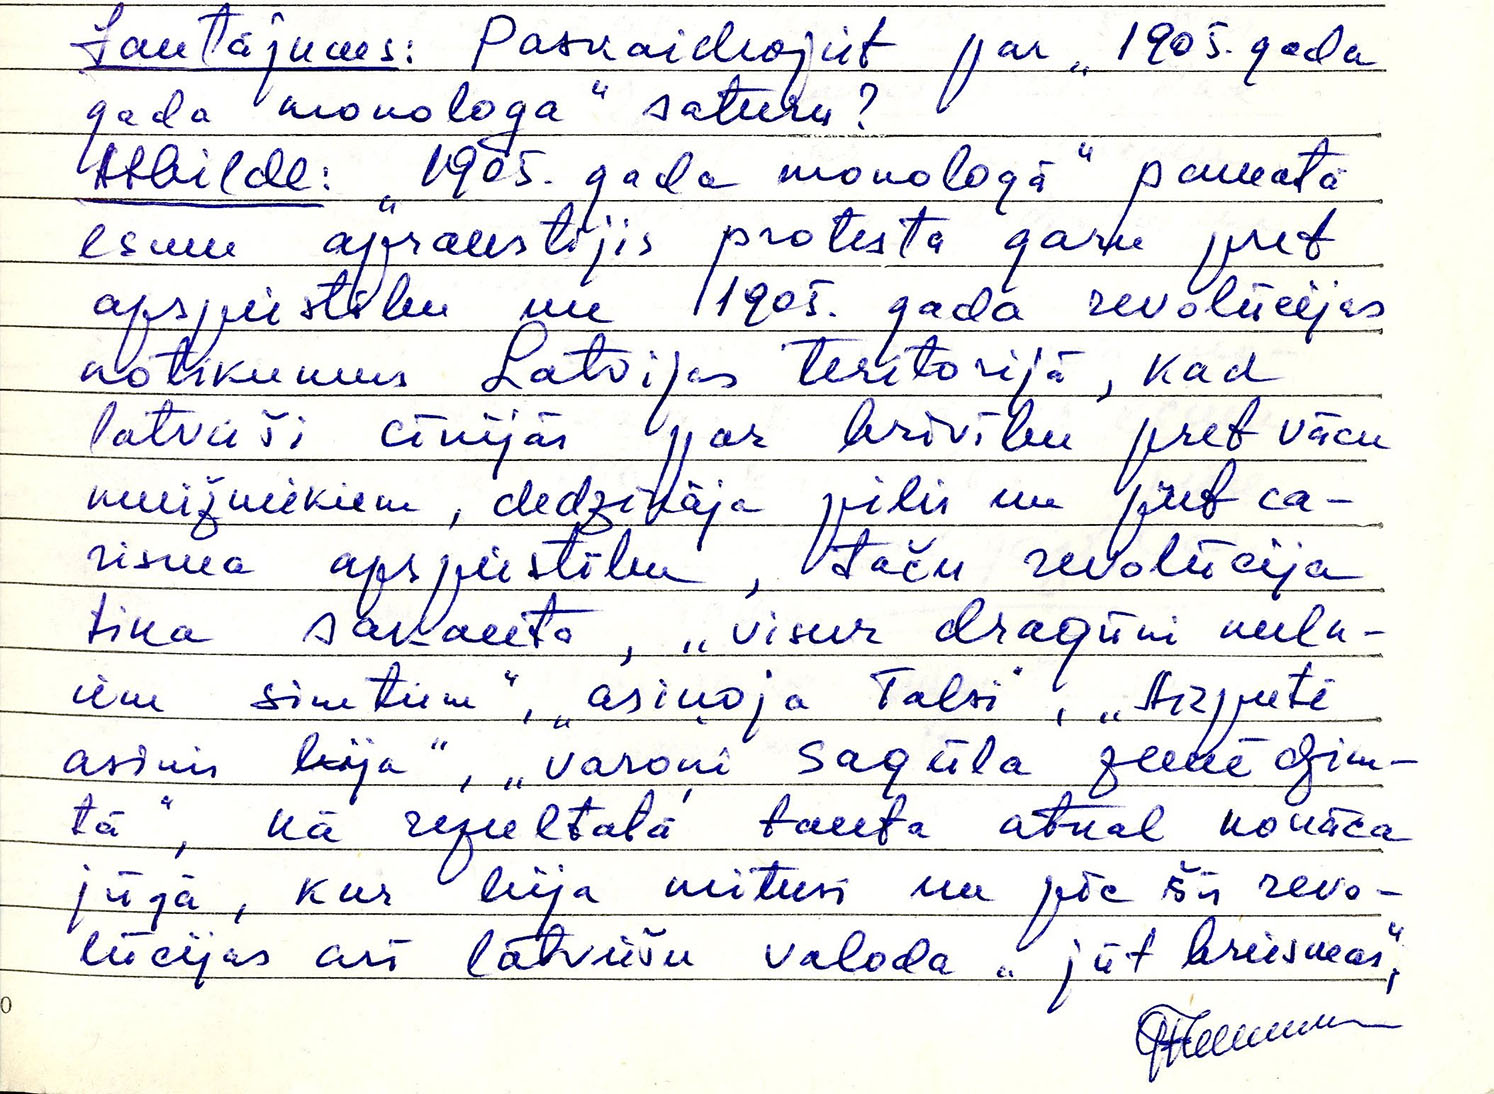 Jautājums: Paskaidrojiet par „1905. gada
gada monologa“ saturu?
Atbilde: „1905. gada monologā“ pamatā
esmu aprakstījis protesta garu pret
apspiestību un 1905. gada revolūcijas
notikumus Latvijas teritorijā, kad
latvieši cīnījās par brīvību pret vācu
muižniekiem, dedzināja pilis un pret ca-
risma apspiestību, taču revolūcija
tika sakauta, „visur dragūni meln-
iem simtiem“, „asiņoja Talsi“, „Aizputē
asinis lija“, „varoņi sagūla zemē dzim-
tā“, kā rezultatā tauta atkal nonāca
jūgā, kur bija mitusi un pēc šīs revo-
lūcijas arī latviešu valoda „jūt briesmas“,
0